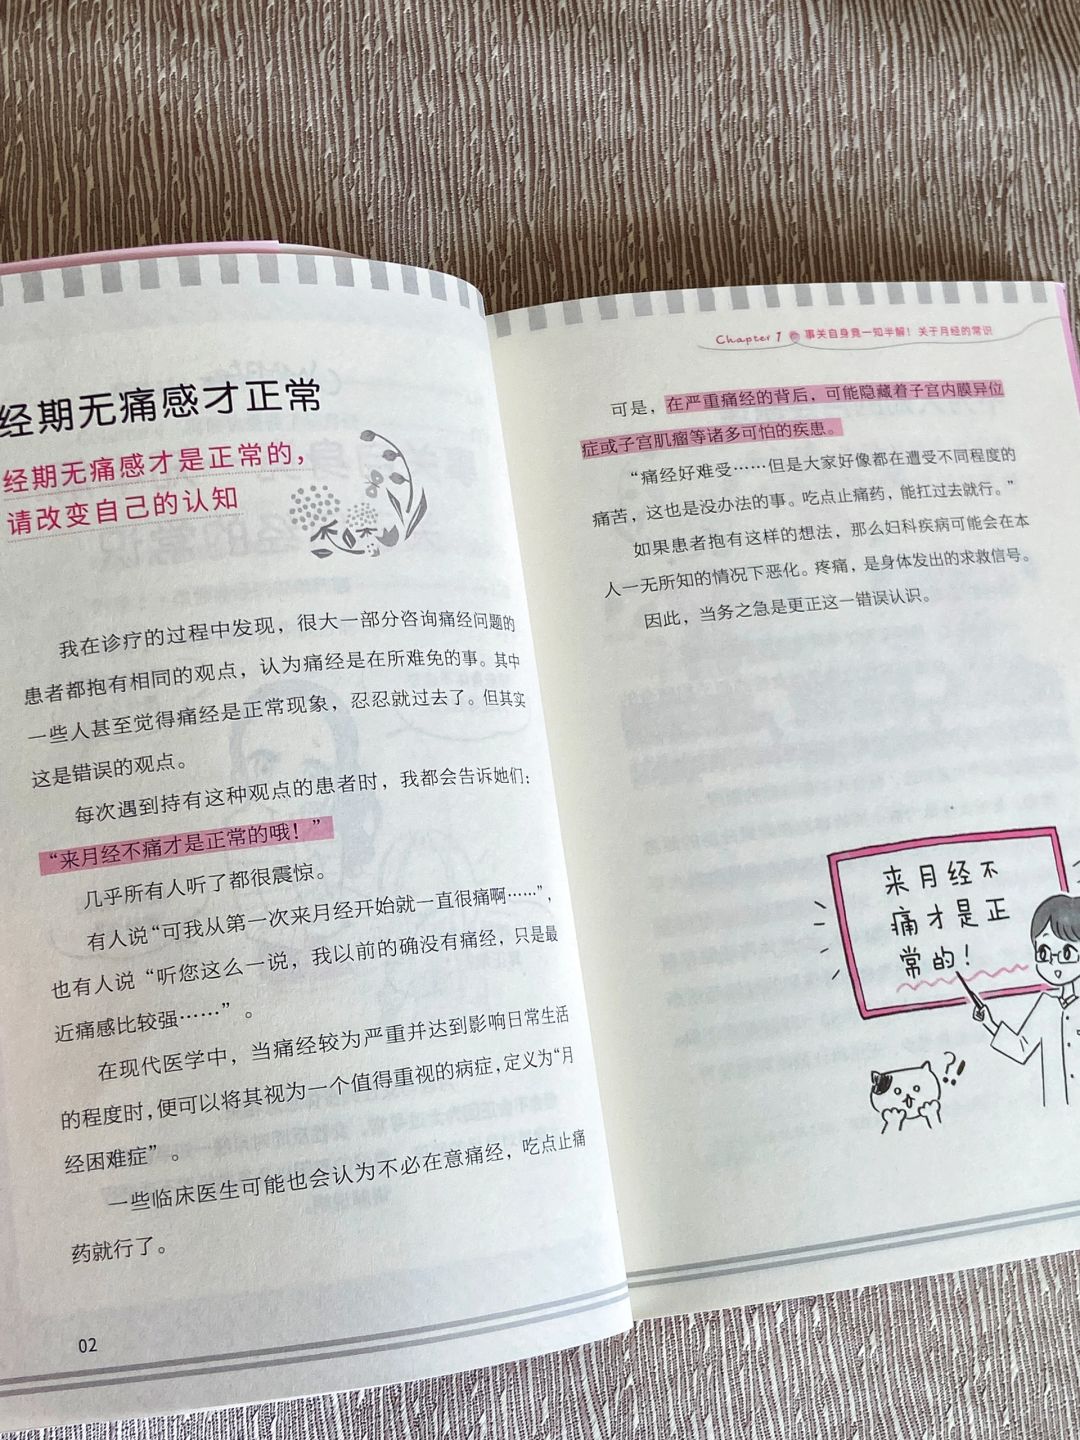 经期无痛感才正常
经期无痛感才是正常的，
请改变自己的认知
我在诊疗的过程中发现，很大一部分咨询痛经问题的
患者都抱有相同的观点，认为痛经是在所难免的事。其中
一些人甚至觉得痛经是正常现象，忍忍就过去了。但其实
这是错误的观点。
每次遇到持有这种观点的患者时，我都会告诉她们：
“来月经不痛才是正常的哦！”
几乎所有人听了都很震惊。
有人说“可我从第一次来月经开始就一直很痛啊……”，
也有人说“听您这么一说，我以前的确没有痛经，只是最
近痛感比较强……”。
在现代医学中，当痛经较为严重并达到影响日常生活
的程度时，便可以将其视为一个值得重视的病症，定义为“月
经困难症”。
一些临床医生可能也会认为不必在意痛经，吃点止痛
药就行了。
02
Chapter 1 事关自身竟一知半解！关于月经的常识
可是，在严重痛经的背后，可能隐藏着子宫内膜异位
症或子宫肌瘤等诸多可怕的疾患。
“痛经好难受……但是大家好像都在遭受不同程度的
痛苦，这也是没办法的事。吃点止痛药，能扛过去就行。”
如果患者抱有这样的想法，那么妇科疾病可能会在本
人一无所知的情况下恶化。疼痛，是身体发出的求救信号。
因此，当务之急是更正这一错误认识。
来月经不
痛才是正
常的！
?!